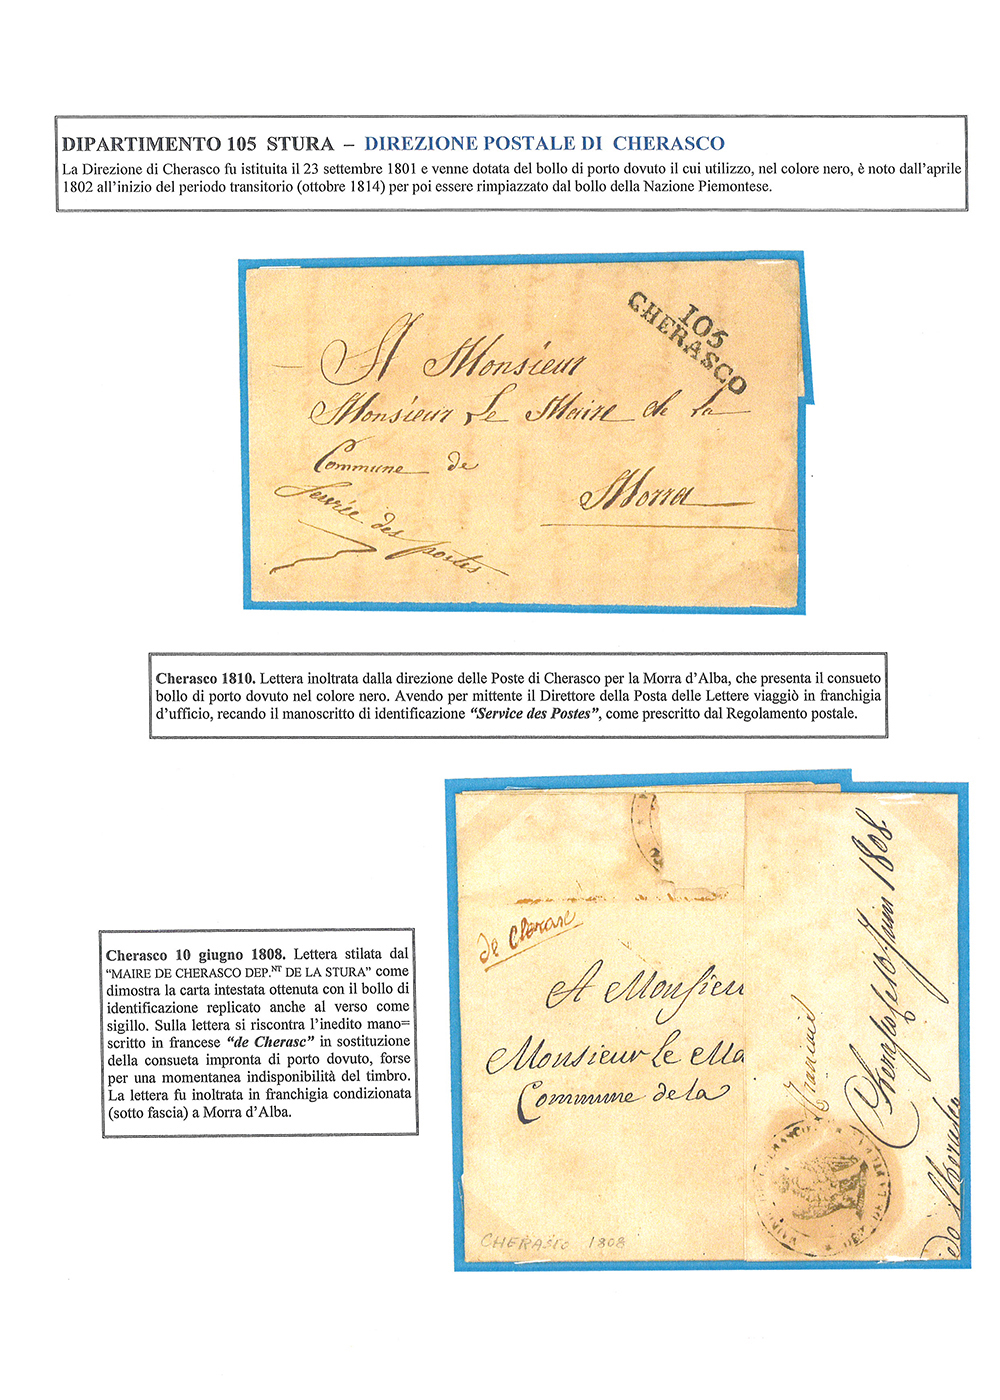 DIPARTIMENTO 105 STURA – DIREZIONE POSTALE DI CHERASCO
La Direzione di Cherasco fu istituita il 23 settembre 1801 e venne dotata del bollo di porto dovuto il cui utilizzo, nel colore nero, è noto dall'aprile
1802 all'inizio del periodo transitorio (ottobre 1814) per poi essere rimpiazzato dal bollo della Nazione Piemontese.
105
CHERASCO
A Monsieur
Monsieur Le Maire de la
Commune de
Morra
Service des postes
Cherasco 1810. Lettera inoltrata dalla direzione delle Poste di Cherasco per la Morra d'Alba, che presenta il consueto
bollo di porto dovuto nel colore nero. Avendo per mittente il Direttore della Posta delle Lettere viaggiò in franchigia
d'ufficio, recando il manoscritto di identificazione "Service des Postes", come prescritto dal Regolamento postale.
Cherasco 10 giugno 1808. Lettera stilata dal
"MAIRE DE CHERASCO DEP.NT DE LA STURA" come
dimostra la carta intestata ottenuta con il bollo di
identificazione replicato anche al verso come
sigillo. Sulla lettera si riscontra l'inedito mano=
scritto in francese "de Cherasc" in sostituzione
della consueta impronta di porto dovuto, forse
per una momentanea indisponibilità del timbro.
La lettera fu inoltrata in franchigia condizionata
(sotto fascia) a Morra d'Alba.
de Cherasc
A Monsieu
Monsieur Le Ma
Commune de la
CHERASCO 1808
10 Juin 1808